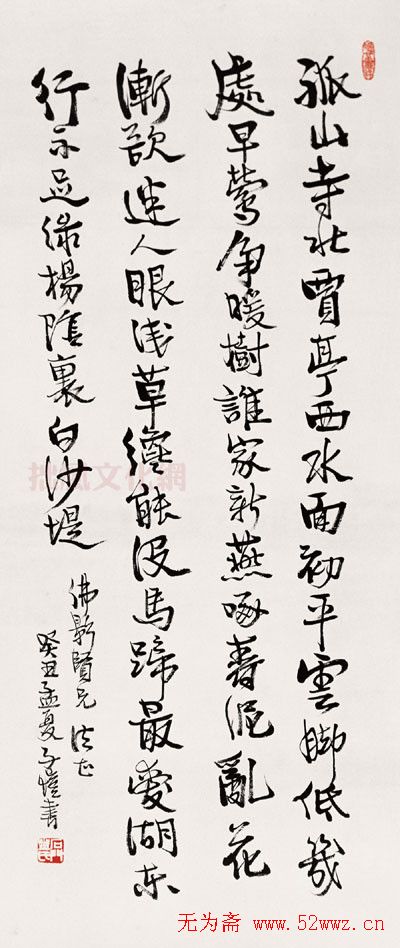 孤山寺北賈亭西水面初平雲脚低幾
處早鶯争暖樹誰家新燕啄春泥亂花
漸欲迷人眼浅草纔能没馬蹄最愛湖東
行不足綠楊陰裏白沙堤
佛影賢兄法正
癸丑孟夏子愷書
文化網
无为斋 www.52wwz.cn